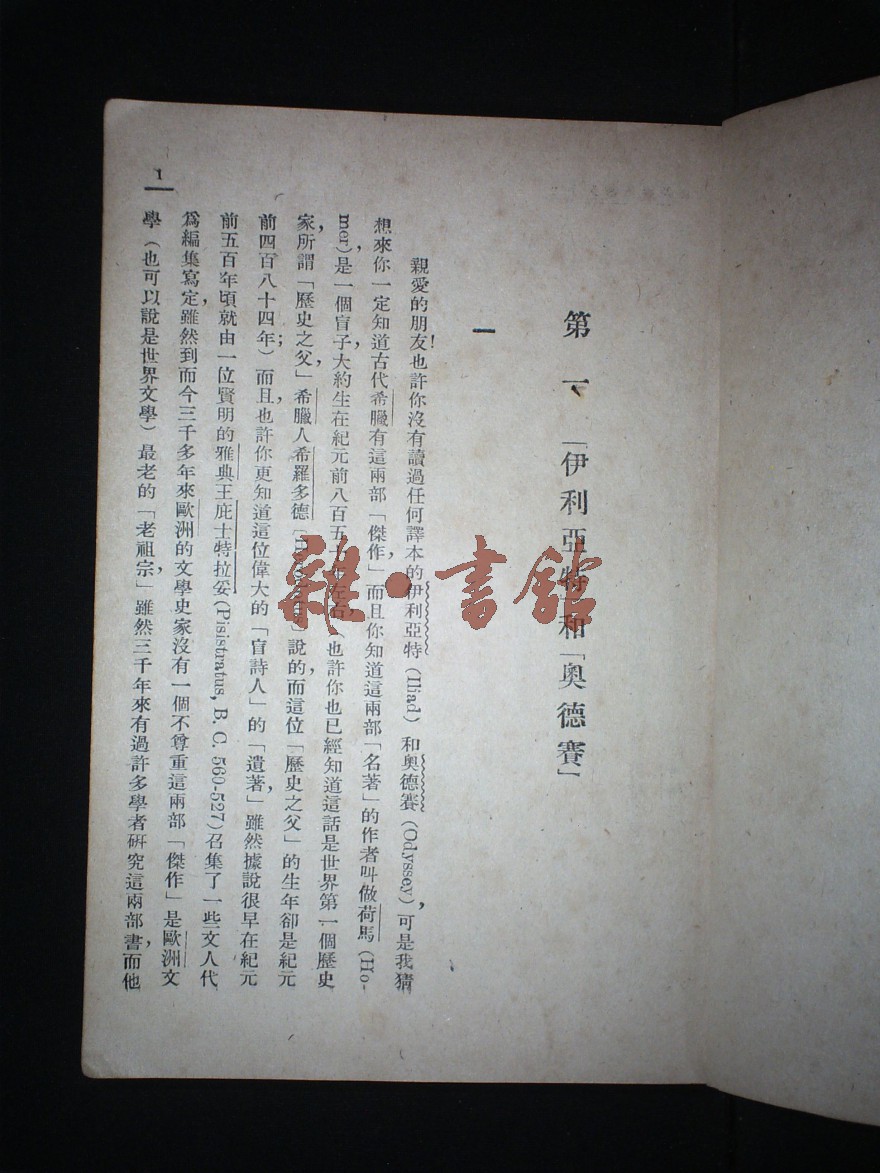 第一、「伊利亞特」和「奧德賽」
一
親愛的朋友！也許你沒有讀過任何譯本的伊利亞特 (Iliad) 和奧德賽 (Odyssey)，可是我猜
想來你一定知道古代希臘有這兩部「傑作」，而且你知道這兩部「名著」的作者叫做荷馬 (Ho-
mer)，是一個盲子，大約生在紀元前八百五十年左右，（也許你也已經知道這話是世界第一個歷史
家，所謂「歷史之父」，希臘人希羅多德 說的，而這位「歷史之父」的生年卻是紀元
前四百八十四年；）而且，也許你更知道這位偉大的「盲詩人」的「遺著」，雖然據說很早在紀元
前五百年頃就由一位賢明的雅典王庇士特拉妥 (Pisistratus, B. C. 560-527) 召集了一些文人代
爲編集寫定，雖然到而今三千多年來歐洲的文學史家沒有一個不尊重這兩部「傑作」是歐洲文
學（也可以說是世界文學）最老的「老祖宗」，雖然三千年來有過許多學者研究這兩部書，而他
1
雜·書館